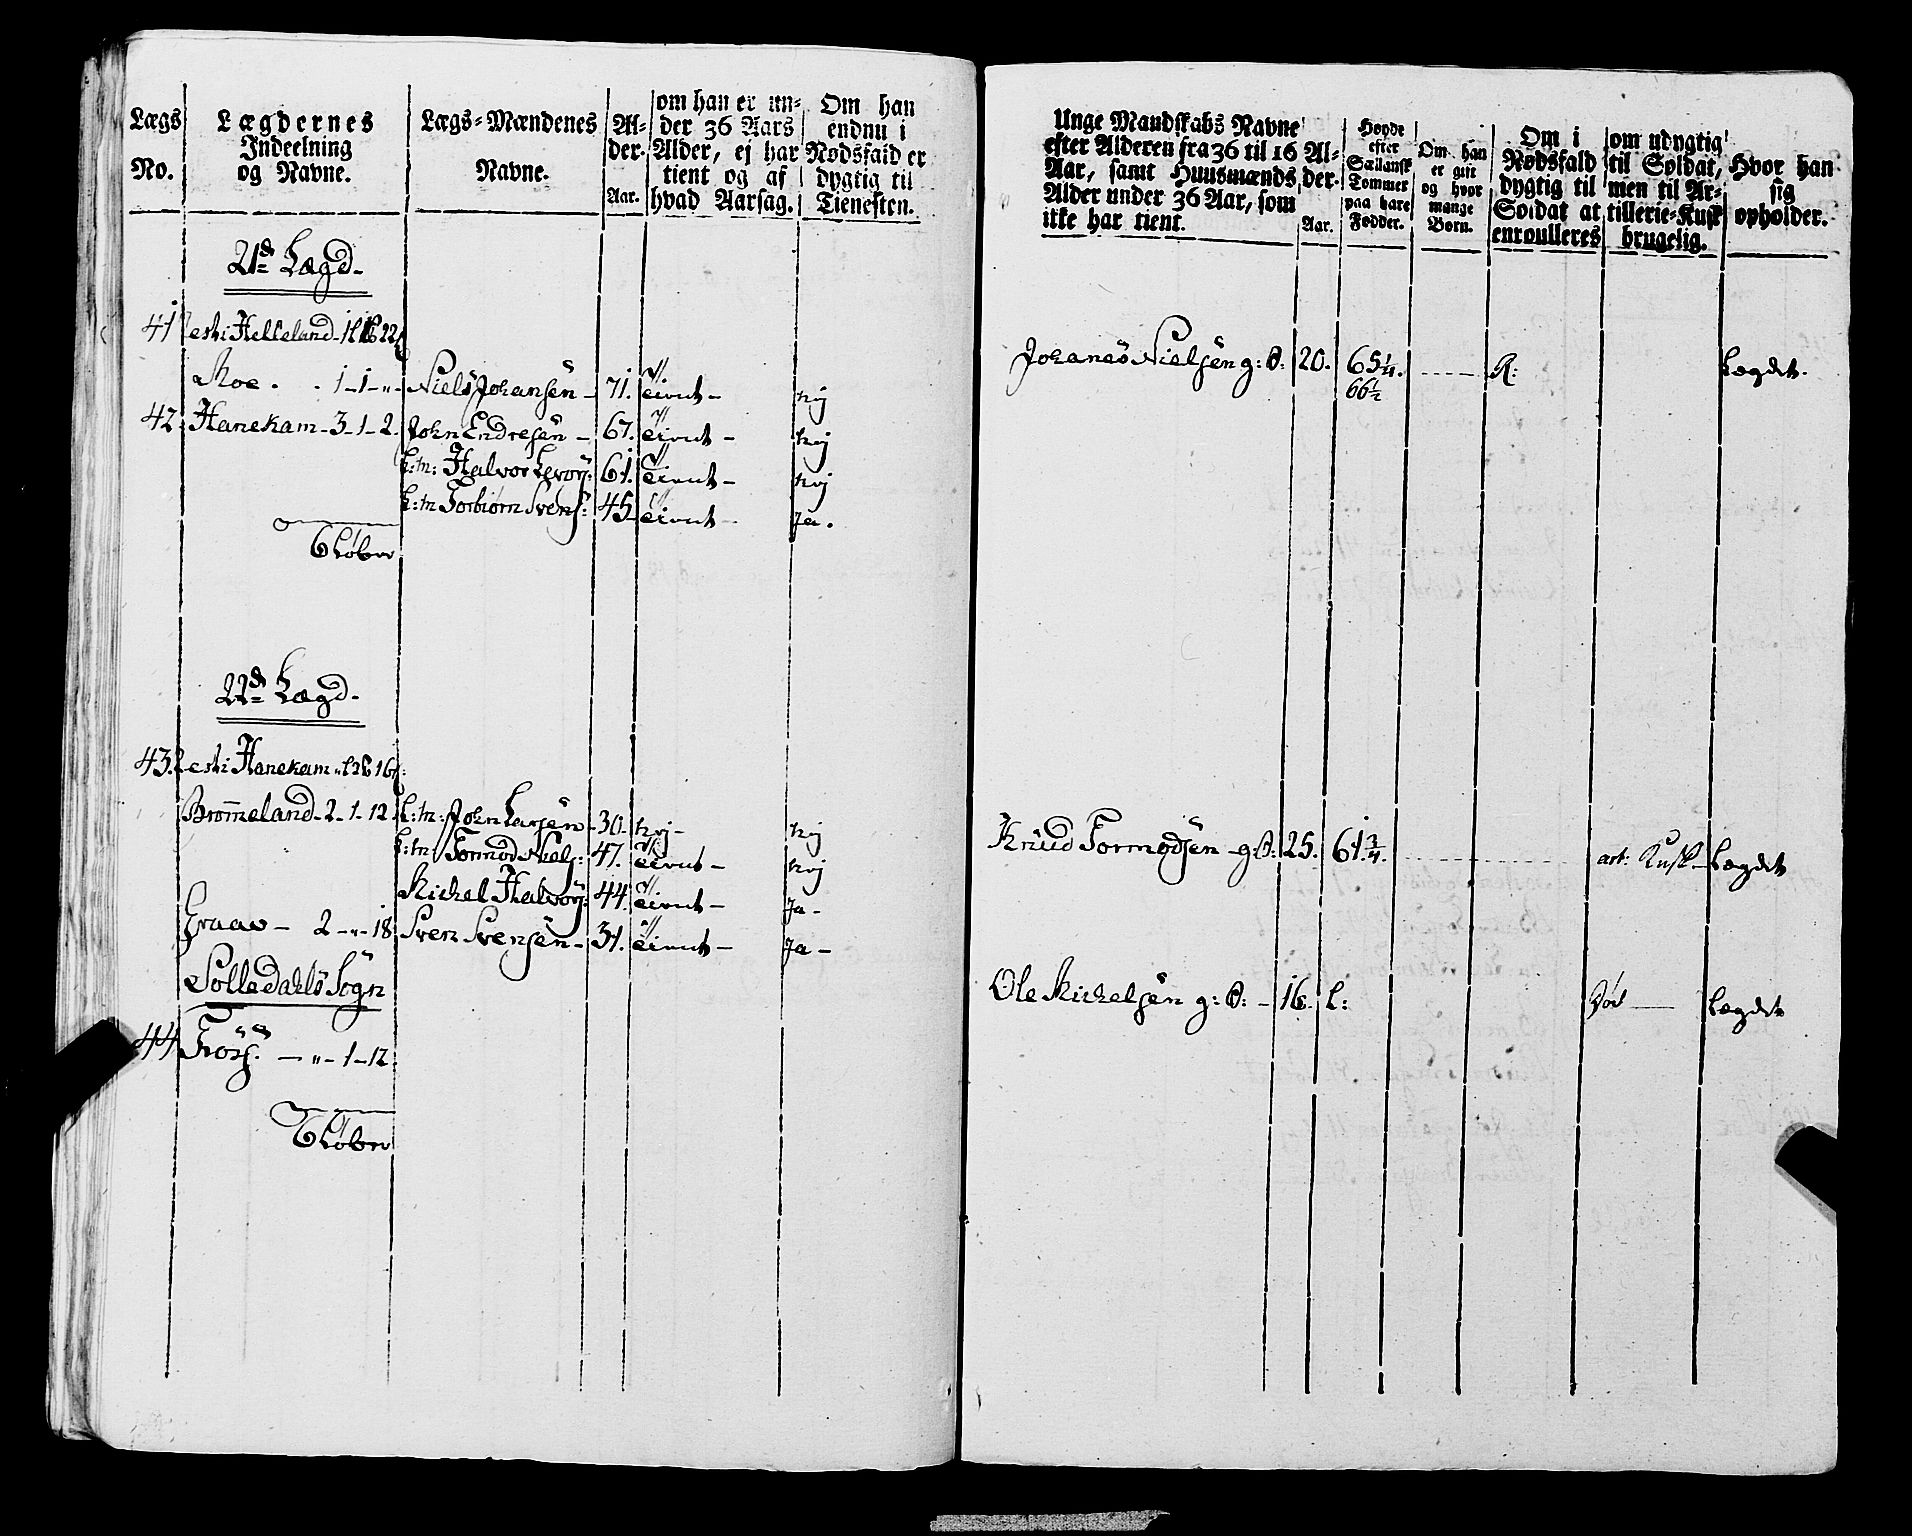 Lægs
No.
Lægdernes
Indeelning
og Navne.
Lægs-Mændenes
Navne.
Al-
der.
Aar.
om han er un-
der 36 Aars
Alder, ej har
tient og af
hvad Aarsag.
Om han
endnu i
Nødsfald er
dygtig til
Tienesten.
21de Lægd-
41 Resti Helleland-
Moe. . 1-1-"- Niels Johansen - 71. tient - nej
42 Hanekam-3-1-2. John Endresen - 67. tient - nej
H:m: Halvor 61. tient - nej
H:m Torbiørn Svens: 45 tient - Ja.
6 Løber
22de Lægd-
43. Resti Hanekam
Brommeland-2-1-12. H:m: John Larsen-30- nej- nej
H:m: Tormod Niels: 47. tient - nej
Michel Halvors: 44. tient - Ja-
Graae - 2-"-18 Sven Svensen- 31. tient - Ja-
Solledahls Sogn
44 - "-1-12.
6 Løber
Unge Mandskabs Navne
efter Alderen fra 36 til 16
Aar, samt Huusmænds
Alder under 36 Aar, som
ikke har tient.
Al-
der.
Aar.
Høyde
efter
Sællansk
Tommer
paa bare
Fødder.
Om han
er gift
og hvor
mange
Børn.
Om i
Nødsfald
dygtig til
Soldat at
enroulleres
om udygtig
til Soldat,
men til Ar-
tillerie-Kusk
brugelig.
Hvor han
sig
opholder.
Johanes Nielsen g: S: 20. 65 1/4. R: Lægdet.
66 1/2
Knud Tormodsen - g: S: 25. 61 3/4. art: Kusk - Lægdet
Ole Michelsen g: S: - 16. L: Død Lægdet